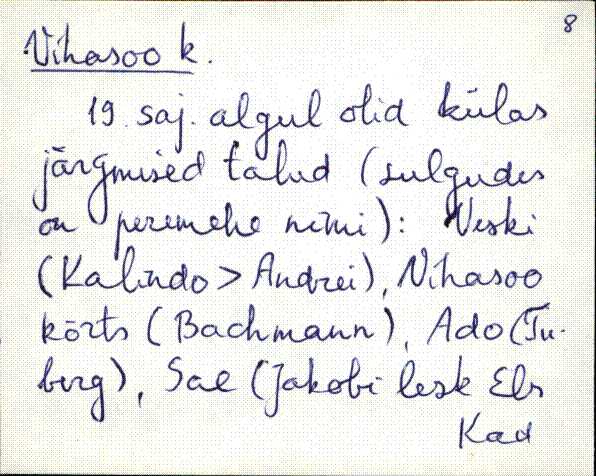 8
Vihasoo k.
19. saj. algul olid külas
järgmised talud (sulgudes
on peremehe nimi): Veski
(Kalindo > Andrei), Vihasoo
kõrts (Bachmann), Ado (Tu-
berg), Sae (Jakobi lesk Els
Kad